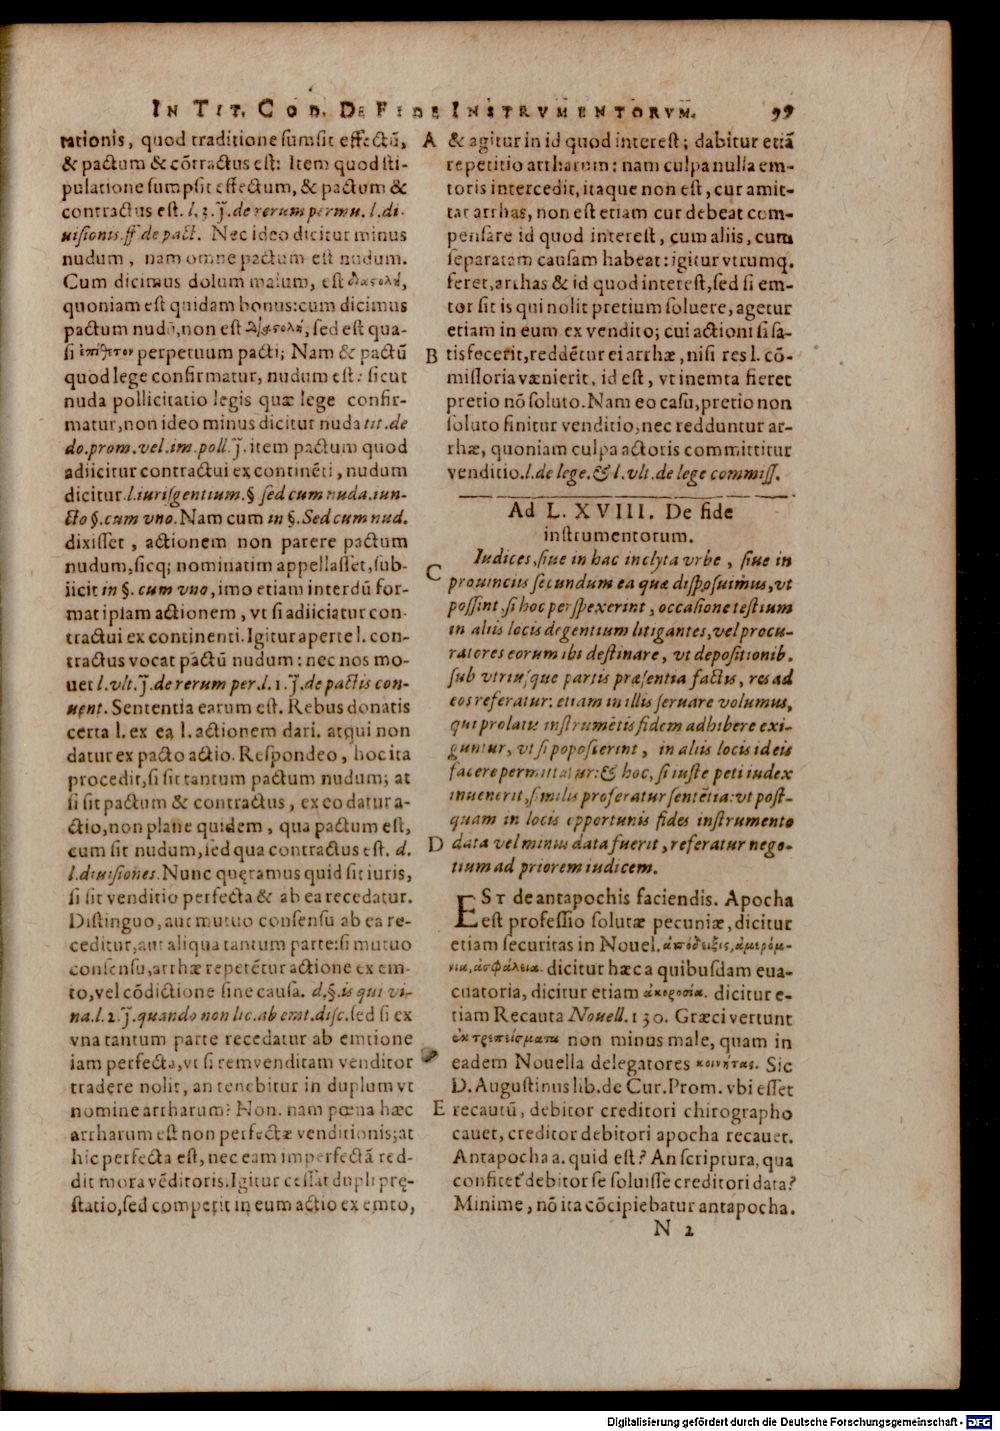 IN TIT. COD. DE FIDE INSTRVMENTORVM. 99
tationis, quod traditione sūmsit effectū,
& pactum & cōtractus est: Item quod sti-
pulatione sumpsit effectum, & pactum &
contractus est. l. 3. J. de rerum permu. l. di-
uisionis. ff. de pact. Nec ideo dicitur minus
nudum, nam omne pactum est nudum.
Cum dicimus dolum malum, est διαστολή,
quoniam est quidam bonus: cum dicimus
pactum nudū, non est διαστολή, sed est qua-
si ἐπίθετον perpetuum pacti; Nam & pactū
quod lege confirmatur, nudum est: sicut
nuda pollicitatio legis quæ lege confir-
matur, non ideo minus dicitur nuda tit. de
do. prom. vel. im. poll. J. item pactum quod
adiicitur contractui ex continēti, nudum
dicitur. l. iurisgentium. § sed cum nuda. iun-
cto §. cum vno. Nam cum in §. Sed cum nud.
dixisset, actionem non parere pactum
nudum, sicq; nominatim appellasset, sub-
iicit in §. cum vno, imo etiam interdū for-
mat ipsam actionem, vt si adiiciatur con-
tractui ex continenti. Igitur aperte l. con-
tractus vocat pactū nudum: nec nos mo-
uet l. vlt. J. de rerum per. l. 1. J. de pactis con-
uent. Sententia earum est. Rebus donatis
certa l. ex ea l. actionem dari. atqui non
datur ex pacto actio. Respondeo, hoc ita
procedit, si sit tantum pactum nudum; at
si sit pactum & contractus, ex eo datur a-
ctio, non plane quidem, qua pactum est,
cum sit nudum, sed qua contractus est. d.
l. diuisiones. Nunc quęramus quid sit iuris,
si sit venditio perfecta & ab ea recedatur.
Distinguo, aut mutuo consensu ab ea re-
ceditur, aut aliqua tantum parte: si mutuo
consensu, arrhæ repetētur actione ex em-
to, vel cōdictione sine causa. d. §. is qui vi-
na. l. 2. J. quando non lic. ab emt. disc. sed si ex
vna tantum parte recedatur ab emtione
iam perfecta, vt si rem venditam venditor
tradere nolit, an tenebitur in duplum vt
nomine arrharum? Non. nam pœna hæc
arrharum est non perfectæ venditionis; at
hic perfecta est, nec eam imperfectā red-
dit mora vēditoris. Igitur cessat dupli pręs-
statio, sed competit in eum actio ex emto,
A & agitur in id quod interest; dabitur etiā
repetitio arrharum: nam culpa nulla em-
toris intercedit, itaque non est, cur amit-
tat arrhas, non est etiam cur debeat com-
pensare id quod interest, cum aliis, cum
separatam causam habeat: igitur vtrumq.
feret, arrhas & id quod interest, sed si em-
tor sit is qui nolit pretium soluere, agetur
etiam in eum ex vendito; cui actioni si sa-
B tisfecerit, reddētur ei arrhæ, nisi res l. cō-
missoria vænierit, id est, vt inemta fieret
pretio nō soluto. Nam eo casu, pretio non
soluto finitur venditio, nec redduntur ar-
rhæ, quoniam culpa actoris committitur
venditio. l. de lege. & l. vlt. de lege commiss.
Ad L. XVIII. De fide
instrumentorum.
Iudices, siue in hac inclyta vrbe, siue in
C prouinciis secundum ea quæ disposuimus, vt
possint, si hoc perspexerint, occasione testium
in aliis locis degentium litigantes, vel procu-
ratores eorum ibi destinare, vt depositionib.
sub vtriusque partis præsentia factis, res ad
eos referatur: etiam in illis seruare volumus,
qui prolatis instrumētis fidem adhibere exi-
guntur, vt si poposcerint, in aliis locis id eis
facere permittatur: & hoc, si iuste peti iudex
inuenerit, similis proferatur sentētia: vt post-
quam in locis opportunis fides instrumento
D data vel minus data fuerit, referatur nego-
tium ad priorem iudicem.
EST de antapochis faciendis. Apocha
est professio solutæ pecuniæ, dicitur
etiam securitas in Nouel. ἀπόδειξις, ἀμεριμ-
νια, ἀσφάλεια. dicitur hæc a quibusdam eua-
cuatoria, dicitur etiam dicitur e-
tiam Recauta Nouell. 130. Græci vertunt
non minus male, quam in
eadem Nouella delegatores Sic
D. Augustinus lib. de Cur. Prom. vbi esset
E recautū, debitor creditori chirographo
cauet, creditor debitori apocha recauet.
Antapocha a. quid est? An scriptura, qua
confitet' debitor se soluisse creditori data?
Minime, nō ita cōcipiebatur antapocha.
N 2
Digitalisierung gefördert durch die Deutsche Forschungsgemeinschaft - DFG